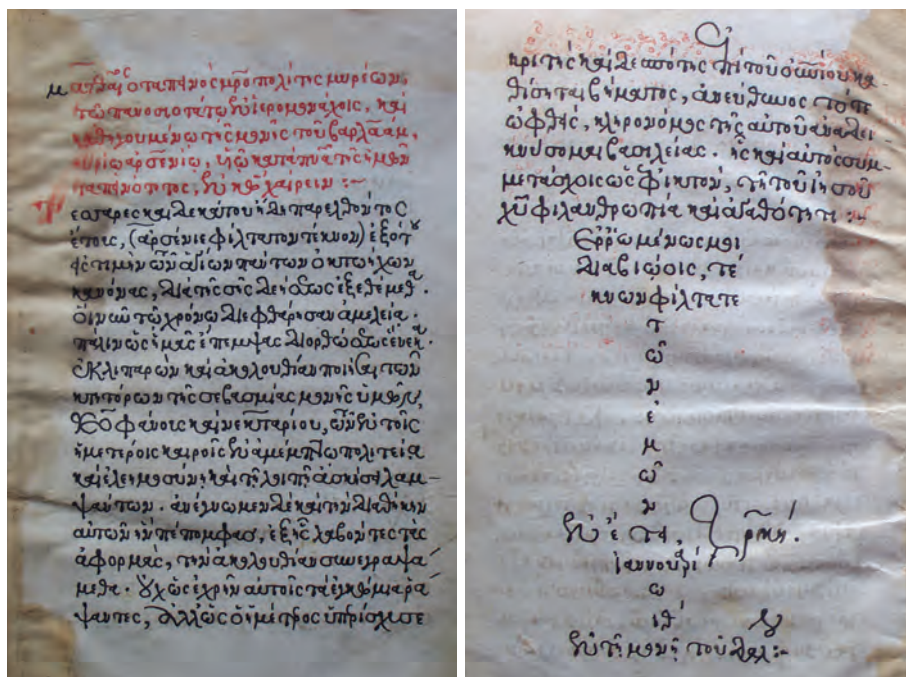 Ματθαῖος ὁ ταπεινὸς μητροπολίτης μυρέων,
τῷ πανοσιοτάτῳ ἐν ἱερομονάχοις, καὶ
καθηγουμένῳ τῆς μονῆς τοῦ βαρλαάμ,
κυρίῳ ἀρσενίῳ, υἱῷ κατὰ πνα τῆς ἡμῶν
ταπεινότητος, ἐν κω χαίρειν :-
Τεσσαρεσκαιδεκάτου ἤδη παρελθόντος
ἔτους, (ἀρσένιε φίλτατον τέκνον) ἐξότου
ἁγίων πάντων ὀκτωήχων
κανόνας, διὰ τῆς σῆς ἐξεθέμεθα.
τῷ χρόνῳ διεφθάρησαν ἀμελείᾳ.
πάλιν ὡς ἡμᾶς ἔπεμψας διορθώσεως ἕνεκα.
ἐκλιπαρῶν καὶ ἀκολουθίαν ποιῆσαι τῶν
κτητόρων τῆς σεβασμίας μονῆς ὑμῶν,
θεοφάνους καὶ νεκταρίου, τῶν ἐν τοῖς
ἡμετέροις καιροῖς ἐν ἀμέμπτῳ πολιτείᾳ
καὶ ἐλεημοσύνῃ καὶ τῇ λοιπῇ ἀσκήσει λαμ-
ψάντων. ἀνέγνωμεν δὲ καὶ τὴν διαθήκην
αὐτῶν ἣν πέπομφας, ἐξ ἧς λαβόντες τὰς
ἀφορμάς, τὴν ἀκολουθίαν συνεγραψά
μεθα. οὐχ ὡς ἐχρῆν αὐτοῖς τὰ ἐγκώμια ῥά
ψαντες, ἀλλ' ὡς
κριτὴς καὶ δεσπότης ἐπὶ τοῦ κα
θίσηται βήματος, ἀνεύθυνος τότε
ὠφθῇς, κληρονόμος τῆς αὐτοῦ ἀναδει
κνυσο βασιλείας. ἧς καὶ αὐτὸς συμ-
μετάσχοις ὡς ἐφικτὸν, τῇ τοῦ ἰησοῦ
χῦ φιλανθρωπίᾳ καὶ ἀγαθότητι :-
Ἐῤῥωμένως μοι
διαβιώοις, τέ
κνων φίλτατε
τ
ῶ
ν
ἐ
μ
ῶ
ν
ἐν ἔτει,
ἰαννουαρί
ω
ιθ
ἐν τῇ μονῇ τοῦ